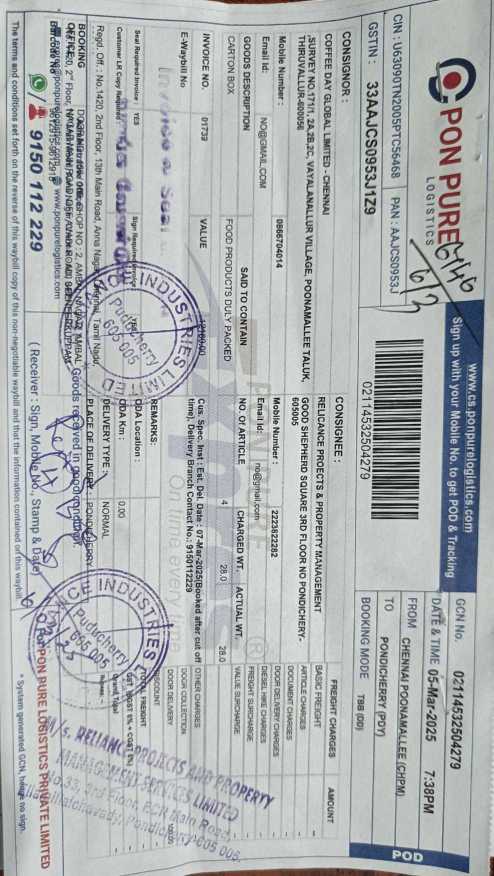 PON PURE
LOGISTICS
CIN : U63090TN2005PTC56468 PAN : AAJCS0953J
GSTIN : 33AAJCS0953J1Z9
www.cs.ponpurelogistics.com
Sign up with your Mobile No. to get POD & Tracking
02114532504279
GCN No. 02114532504279
DATE & TIME 05-Mar-2025 7:38PM
FROM CHENNAI POONAMALLEE (CHPM)
TO PONDICHERRY (PDY)
BOOKING MODE TBB (DD)
POD
CONSIGNOR :
COFFEE DAY GLOBAL LIMITED - CHENNAI
,SURVEY NO.171/1, 2A,2B,2C, VAYALANALLUR VILLAGE, POONAMALLEE TALUK,
THIRUVALLUR-600056
Mobile Number : 0866704014
Email Id: NO@GMAIL.COM
CONSIGNEE :
RELICANCE PROECTS & PROPERTY MANAGEMENT
GOOD SHEPHERD SQUARE 3RD FLOOR NO PONDICHERY-
605005
Mobile Number : 2223822282
Email Id: no@gmail.com
GOODS DESCRIPTION SAID TO CONTAIN NO. Of ARTICLE CHARGED WT. ACTUAL WT.
CARTON BOX FOOD PRODUCTS DULY PACKED 4 28.0 28.0
INVOICE NO. 01739 VALUE
E-Waybill No
Cus. Spec. Inst : Est. Del. Date : 07-Mar-2025(Booked after cut off
time) Delivery Branch Contact No.: 9150112229
REMARKS:
ODA Location :
ODA Km : 0.00
DELIVERY TYPE : NORMAL
PLACE OF DELIVERY : PONDICHERRY
FREIGHT CHARGES AMOUNT
BASIC FREIGHT
ARTICLE CHARGES
DOCUMENT CHARGES
DOOR DELIVERY CHARGES
DIESEL HIKE CHARGES
FREIGHT SURCHARGE
VALUE SURCHARGE
OTHER CHARGES
DOOR COLLECTION
DOOR DELIVERY
DISCOUNT
TOTAL FREIGHT
Grand Total
Seal Required Invoice : YES
Sign Required Invoice : YES
Customer LR Copy Required
Invoice & Seal
On time everytime
Regd. Off. : No.1420, 2nd Floor, 13th Main Road, Anna Nagar, Chennai, Tamil Nadu
BOOKING
OFFICE
www.ponpurelogistics.com
9150 112 229
Goods received in good condition
( Receiver : Sign, Mobile No., Stamp & Date)
INDUSTRIES LIMITED
Puducherry
605 005
INDUSTRIES
Puducherry
605 005
M/s. RELIANCE PROJECTS AND PROPERTY
MANAGEMENT SERVICES LIMITED
No.33, 3rd Floor, ECR Main Road,
Pondicherry-605 005.
PON PURE LOGISTICS PRIVATE LIMITED
* System generated GCN, hence no sign.
The terms and conditions set forth on the reverse of this waybill copy of this non-negotiable waybill and that the information contained on this waybill